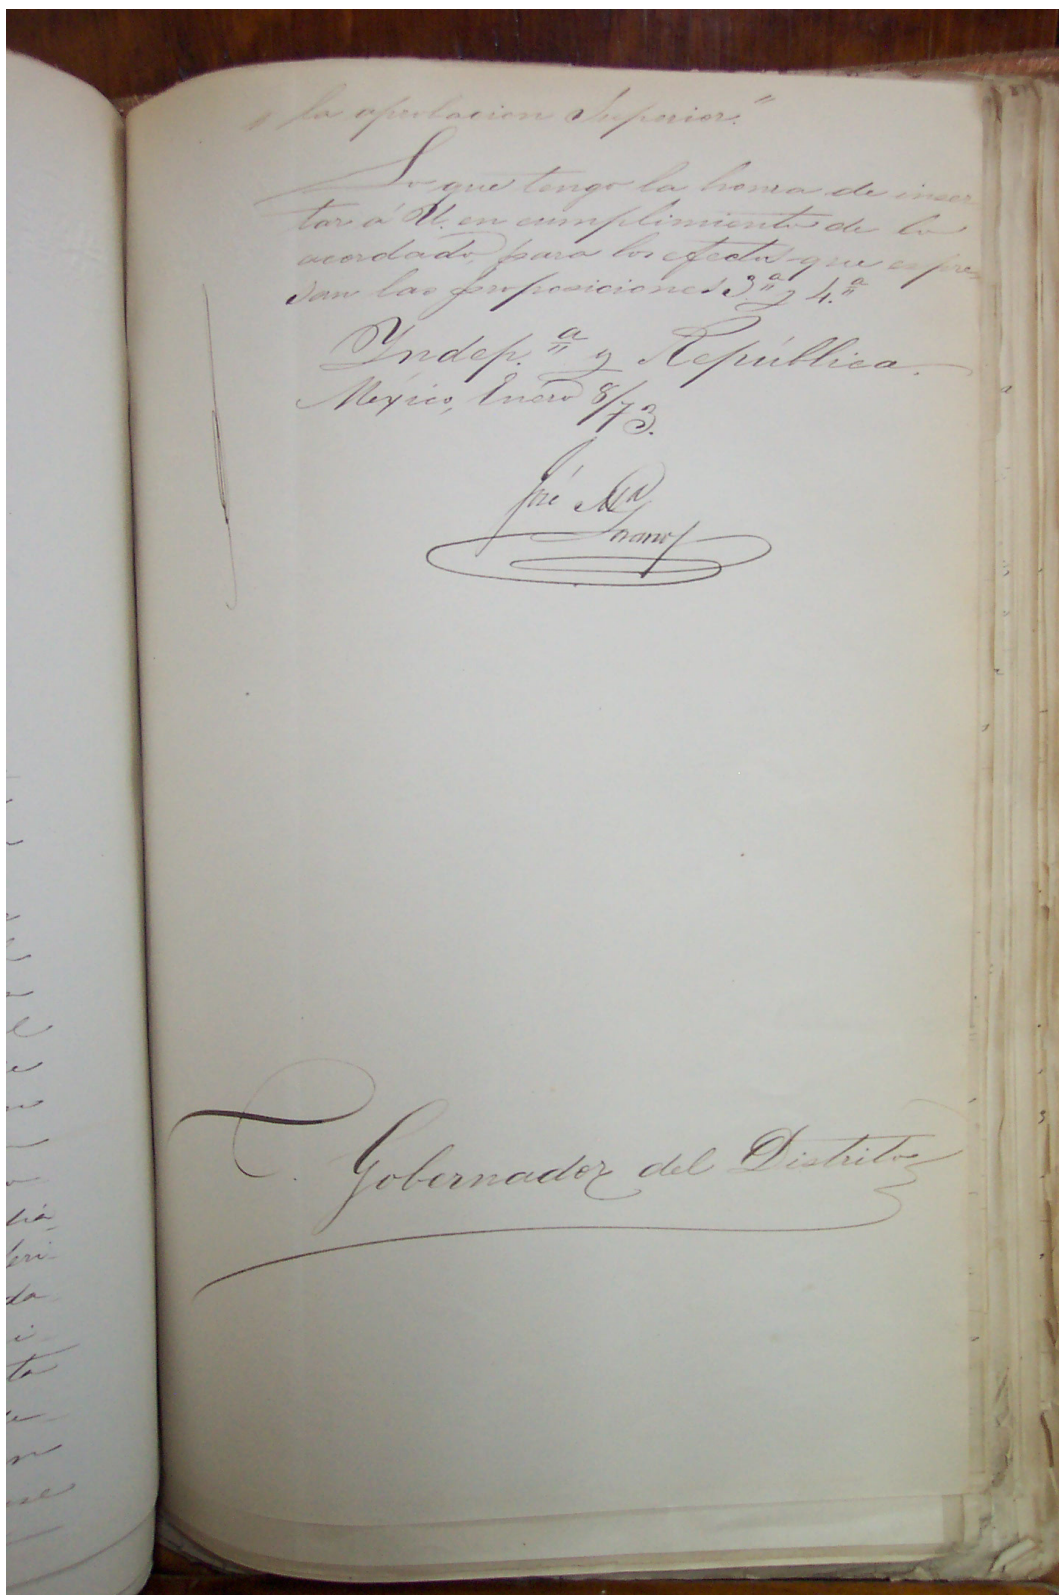 " la aprobacion Superior."
Lo que tengo la honra de inser-
tar á U. en cumplimiento de lo
acordado, para los efectos que espre-
san las proposiciones 3.ª y 4.ª
Yndep.ª y República.
México, Enero 8/73.
José Mª
C. Gobernador del Distrito
tia
bri
da
i
ta
de